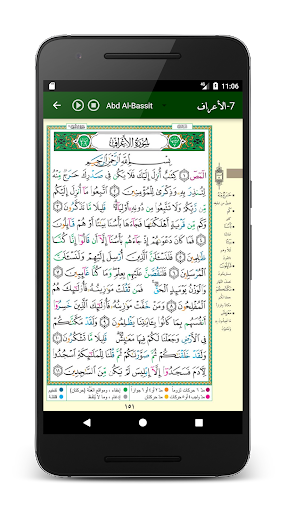 11:06
Abd Al-Bassit
7-الأعراف
سُورَةُ الأَعْرَافِ
بِسْمِ اللَّهِ الرَّحْمَٰنِ الرَّحِيمِ
الٓمٓصٓ ١ كِتَٰبٌ أُنزِلَ إِلَيْكَ فَلَا يَكُن فِي صَدْرِكَ حَرَجٌ مِّنْهُ
لِتُنذِرَ بِهِۦ وَذِكْرَىٰ لِلْمُؤْمِنِينَ ٢ ٱتَّبِعُوا۟ مَآ أُنزِلَ إِلَيْكُم
مِّن رَّبِّكُمْ وَلَا تَتَّبِعُوا۟ مِن دُونِهِۦٓ أَوْلِيَآءَ قَلِيلًا مَّا تَذَكَّرُونَ ٣
وَكَم مِّن قَرْيَةٍ أَهْلَكْنَٰهَا فَجَآءَهَا بَأْسُنَا بَيَٰتًا أَوْ هُمْ قَآئِلُونَ ٤
فَمَا كَانَ دَعْوَىٰهُمْ إِذْ جَآءَهُم بَأْسُنَآ إِلَّآ أَن قَالُوٓا۟ إِنَّا كُنَّا
ظَٰلِمِينَ ٥ فَلَنَسْـَٔلَنَّ ٱلَّذِينَ أُرْسِلَ إِلَيْهِمْ وَلَنَسْـَٔلَنَّ
ٱلْمُرْسَلِينَ ٦ فَلَنَقُصَّنَّ عَلَيْهِم بِعِلْمٍ وَمَا كُنَّا غَآئِبِينَ ٧
وَٱلْوَزْنُ يَوْمَئِذٍ ٱلْحَقُّ فَمَن ثَقُلَتْ مَوَٰزِينُهُۥ فَأُو۟لَٰٓئِكَ هُمُ
ٱلْمُفْلِحُونَ ٨ وَمَنْ خَفَّتْ مَوَٰزِينُهُۥ فَأُو۟لَٰٓئِكَ ٱلَّذِينَ خَسِرُوٓا۟
أَنفُسَهُم بِمَا كَانُوا۟ بِـَٔايَٰتِنَا يَظْلِمُونَ ٩ وَلَقَدْ مَكَّنَّٰكُمْ
فِي ٱلْأَرْضِ وَجَعَلْنَا لَكُمْ فِيهَا مَعَٰيِشَ قَلِيلًا مَّا تَشْكُرُونَ ١٠
وَلَقَدْ خَلَقْنَٰكُمْ ثُمَّ صَوَّرْنَٰكُمْ ثُمَّ قُلْنَا لِلْمَلَٰٓئِكَةِ ٱسْجُدُوا۟
لِـَٔادَمَ فَسَجَدُوٓا۟ إِلَّآ إِبْلِيسَ لَمْ يَكُن مِّنَ ٱلسَّٰجِدِينَ ١١
١٥١